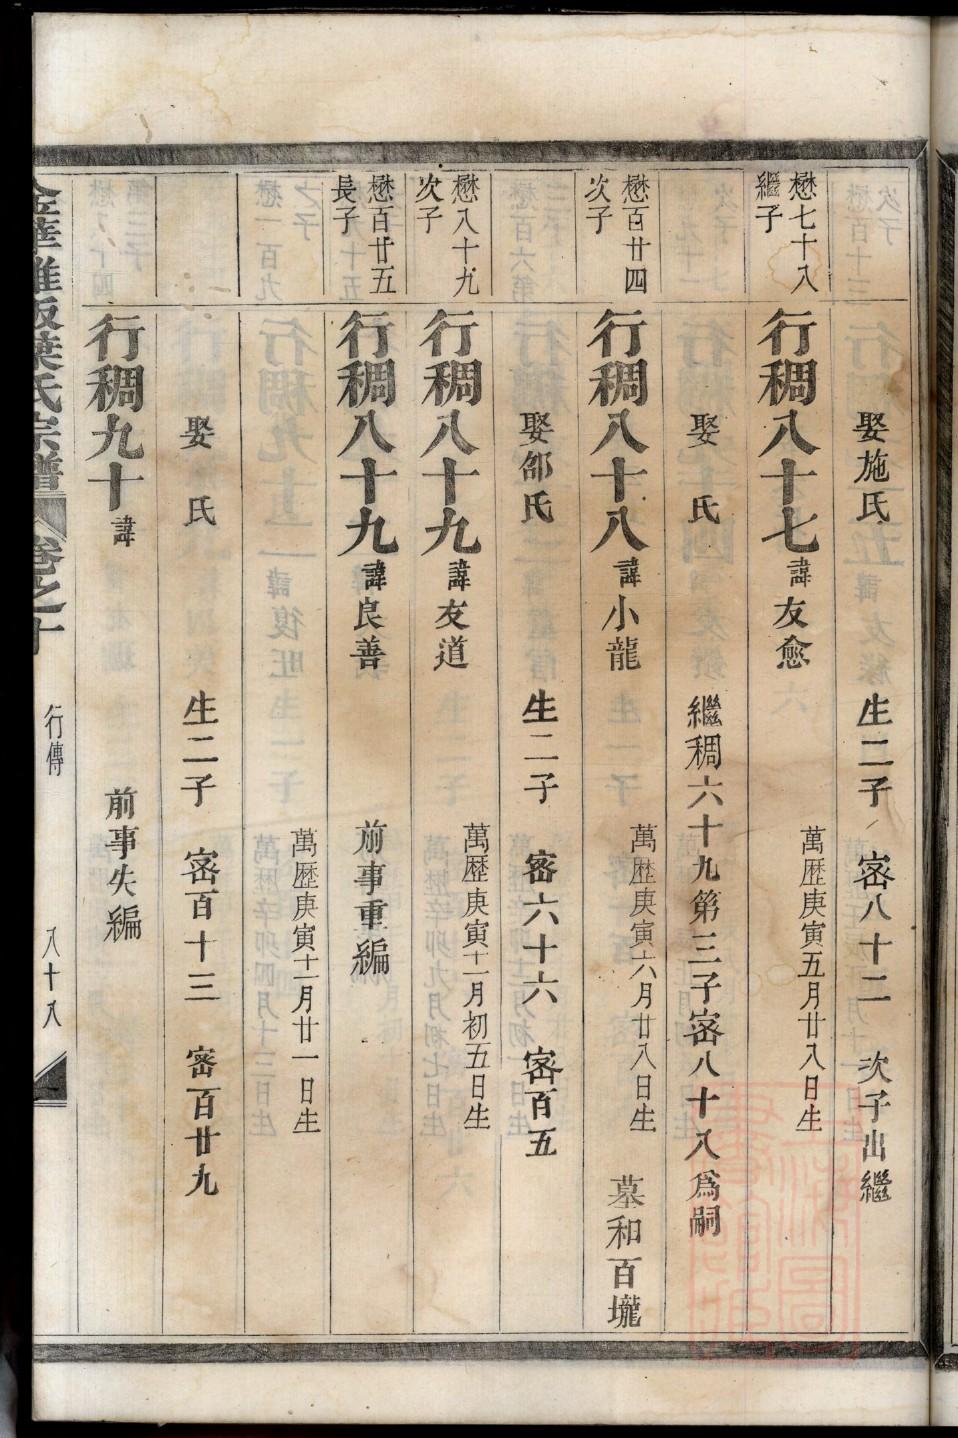 娶施氏 生二子 密八十二 次子出繼
懋七十八繼子 行稠八十七 諱友愈 萬歷庚寅五月廿八日生
娶 氏 繼稠六十九第三子密八十八爲嗣
懋百廿四次子 行稠八十八 諱小龍 萬歷庚寅六月廿八日生 墓和百壠
娶邰氏 生二子 密六十六 密百五
懋八十九次子 行稠八十九 諱友道 萬歷庚寅十一月初五日生
懋百廿五長子 行稠八十九 諱良善 前事重編
萬歷庚寅十一月廿一日生
娶 氏 生二子 密百十三 密百廿九
行稠九十 諱 前事失編
葉氏宗譜 卷之十 行傳 八十八